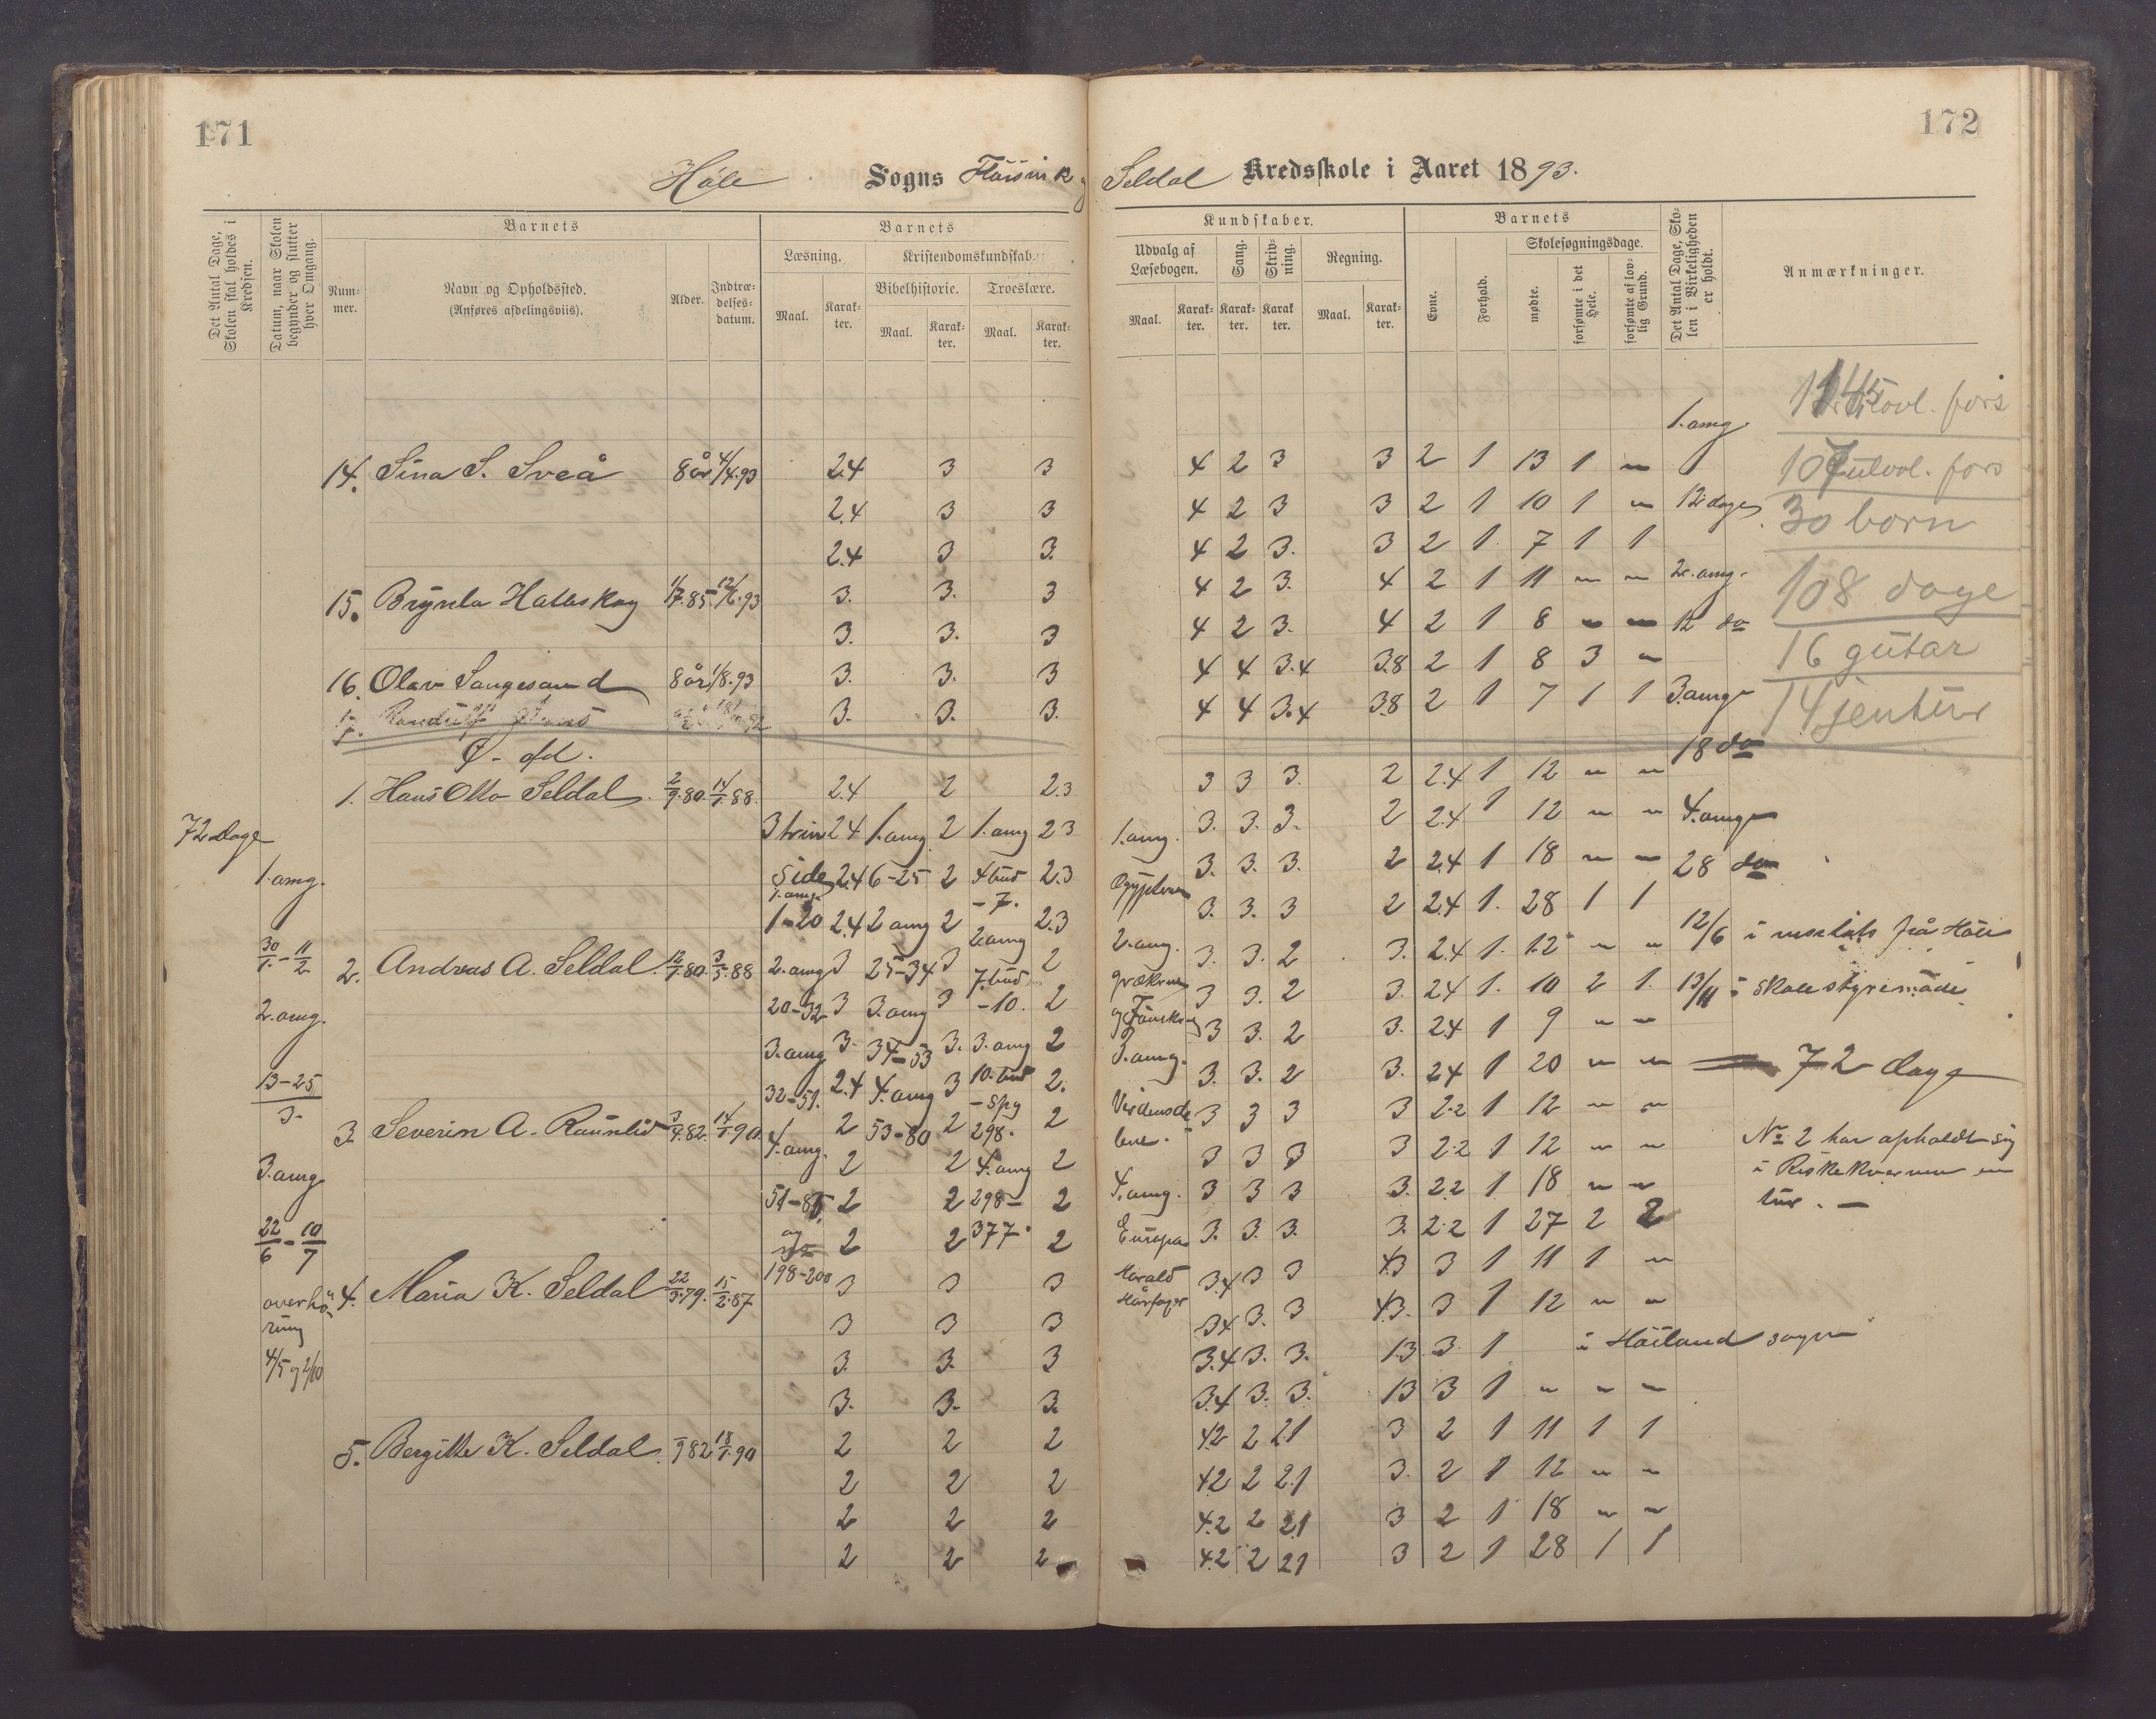 171
172
Høle Sogns
Seldal Kredsskole i Aaret 1893.
Det Antal Dage, Skolen skal holdes i Kredsen.
Datum, naar Skolen begynder og slutter hver Omgang.
Barnets
Nummer.
Navn og Opholdssted.
(Anføres afdelingsviis).
Alder.
Indtrædelsesdatum.
Barnets
Læsning.
Kristendomskundskab.
Bibelhistorie.
Troeslære.
Maal.
Karakter.
Maal.
Karakter.
Maal.
Karakter.
Kundskaber.
Udvalg af Læsebogen.
Sang.
Skrivning.
Regning.
Maal.
Karakter.
Karakter.
Karakter
Maal.
Karakter.
Barnets
Evne.
Forhold.
Skolesøgningsdage.
mødte.
forsømte i det Hele.
forsømte af lovlig Grund.
Det Antal Dage, Skolen i Virkeligheden er holdt.
Anmærkninger.
1. omg.
14. Sina S. Sveå 8 år 4/4.93 2.4 3 3 4 2 3 3 2 1 13 1 "
2.4 3 3 4 2 3 3 2 1 10 1 " 12 dage
2.4 3 3. 4 2 3. 3 2 1. 7 1 1
15. 1/7.85. 12/6.93 3. 3. 3 4 2 3. 4 2 1 11 " " 2. omg.
3. 3. 3 4 2 3. 4 2 1 8 " " 12 do
16. Olav Saugesand 8 år 1/8.93 3. 3. 3 4 4 3.4 3.8 2 1 8 3 "
3. 3. 3. 4 4 3.4 3.8 2 1 7 1 1 3. omg
18 do
ulovl. fors
30 born
108 dage
16 gutar
14 jentur
1. Hans Otto Seldal 2/9.80. 14/1.88. 2.4 2 2.3 3 3 3. 2 2.4 1 12 " "
72 dage
3 trin 2.4 1. omg 2 1. omg 2 3 1. omg. 3. 3. 3. 2 2.4 1 12 " " 4. omg
1. omg.
Side 2.4 6-25 2 4 bud 2.3 3. 3. 3. 2 2.4 1 18 " " 28 do
1. omg. - 7.
1-20 2.4 2 omg 2 2. omg 2.3 3. 3. 3 2 2.4 1. 28 1 1
30/1.-11/2. 2. Andreas A. Seldal 12/1.80. 3/5.88 2. omg 3 25-34 3 7. bud 2 2. omg. 3. 3. 2 3. 2.4 1. 12 " " 12/6 i från Høle
2. omg.
20-32 3 3. omg 3 -10. 2 3 3. 2 3. 2.4 1. 10 2 1. 13/11 i skolestyremøde
3. omg 3. 34-53 3. 3. omg 2 3. omg. 3 3. 2 3. 2.4 1 9 " "
13-25/3.
32-51. 2.4 4. omg 3 10. bud 2. 3. 3. 2 3. 2.4 1 20 " " 72 dage
- spg
3. Severin A. Raunlid 3/4.82. 14/1.90. 4. omg. 2 53-80 2 298. 2 3 3 3 3 2.2 1 12 " "
3. omg
2 2 4. omg 2 3 3 3 3 2.2 1 12 " "
No 2 har opholdt sig
i Riskekvernen en
tur. -
51-85 2 2 298- 2 4. omg. 3 3 3 3. 2.2 1 18 " "
22/6-10/7
og 2 2 377. 2 Europa 3. 3. 3. 3. 2.2 1 27 2 2
198-200
overhøring
4/5 og 2/10
4. Maria K. Seldal 22/3.79. 15/2.87 3 3 3 Harald Hårfagre 3.4 3 3 4.3 3 1 11 1 "
3 3 3 3.4 3. 3 4.3. 3 1 12 " "
3. 3. 3 3.4 3. 3. 1.3 3. 1 i Høiland sogn
3. 3. 3. 3.4 3. 3. 1.3 3 1 " " "
5. Bergitte K. Seldal. /9 82 18/1.90 2 2 2 4.2 2 2.1 3 2 1 11 1 1
2 2 2 4.2 2 2.1 3. 2 1 12 " "
2 2 2 4.2 2 2.1 3 2 1 18 " "
2 2 2 4.2 2 2.1 3 2 1 28 1 1